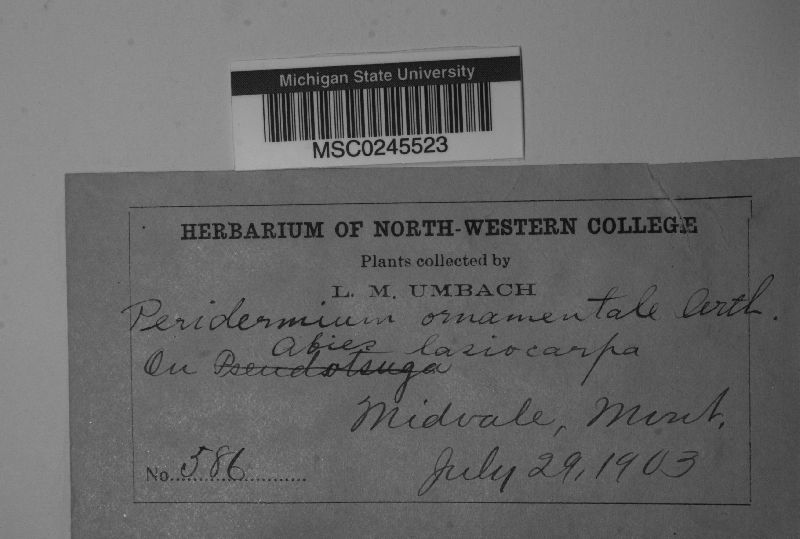 Michigan State University
MSC0245523
HERBARIUM OF NORTH-WESTERN COLLEGE
Plants collected by
L. M. UMBACH
Peridermium ornamentale Arth.
Abies lasiocarpa
On Pseudotsuga
Midvale, Mont.
No. 586 July 29, 1903